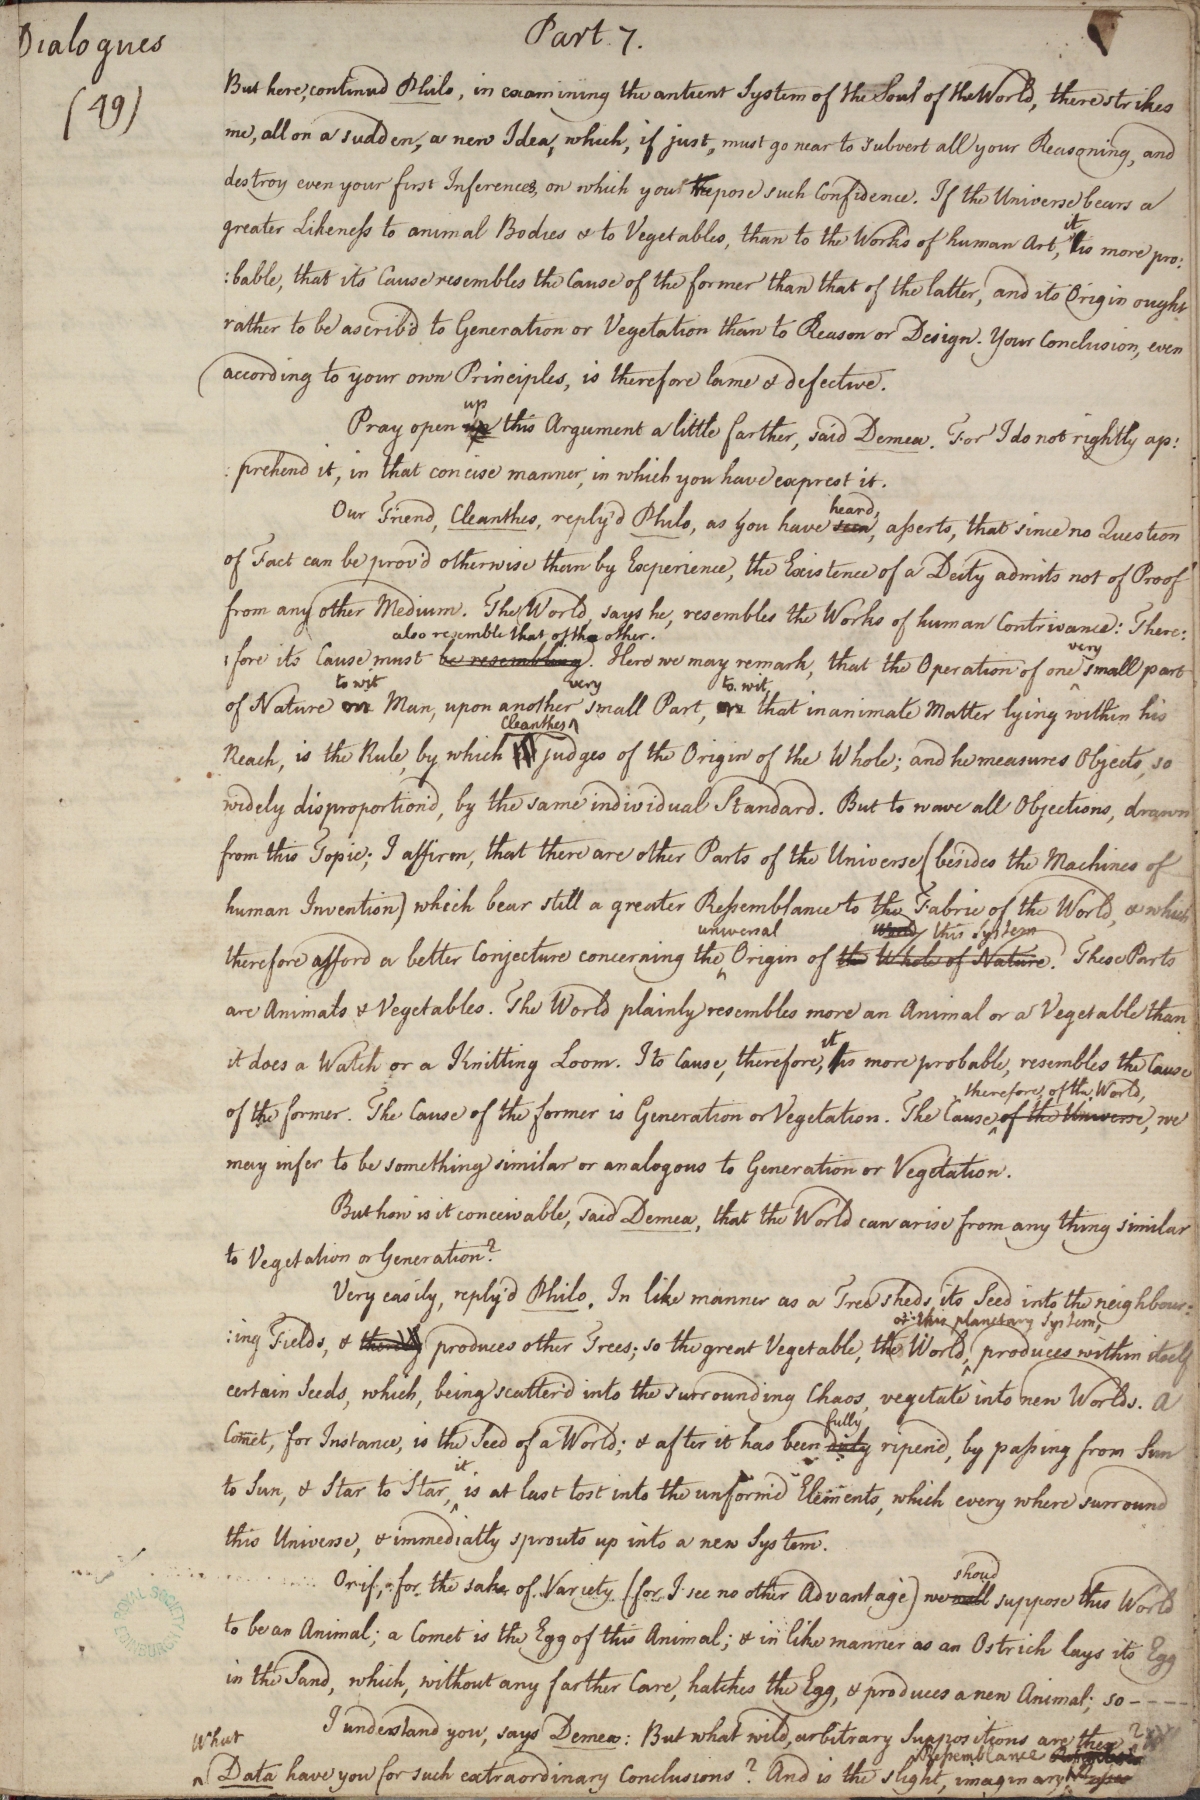 Dialogues
(49)
Part. 7.
But here, continud Philo, in examining the antient System of the Soul of the World, there strikes
me, all on a sudden, a new Idea, which, if just, must go near to subvert all your Reasoning, and
destroy even your first Inferences, on which you repose such Confidence. If the Universe bears a
it
greater Likeness to animal Bodies & to Vegetables, than to the Works of human Art, 'tis more pro:
:bable, that its Cause resembles the Cause of the former than that of the latter, and its Origin ought
rather to be ascrib'd to Generation or Vegetation than to Reason or Design. Your Conclusion, even
according to your own Principles, is therefore lame & defective.
up
Pray open up this Argument a little farther, said Demea. For I do not rightly ap:
:prehend it, in that concise manner, in which you have exprest it.
heard,
Our Friend, Cleanthes, reply'd Philo, as you have seen, asserts, that since no Question
of Fact can be prov'd otherwise than by Experience, the Existence of a Deity admits not of Proof
from any other Medium. The World, says he, resembles the Works of human Contrivance: There:
also resemble that of the other. very
:fore its Cause must be resembling. Here we may remark, that the Operation of one small part
to wit very to wit,
of Nature on Man, upon another small Part, on that inanimate Matter lying within his
Cleanthes
Reach, is the Rule, by which judges of the Origin of the Whole; and he measures Objects, so
widely disproportion'd, by the same individual Standard. But to wave all Objections, drawn
from this Topic; I affirm, that there are other Parts of the Universe (besides the Machines of
human Invention) which bear still a greater Ressemblance to the Fabric of the World, & which
universal this System
therefore afford a better Conjecture concerning the Origin of the Whole of Nature. These Parts
are Animals & Vegetables. The World plainly resembles more an Animal or a Vegetable than
it
it does a Watch or a Knitting Loom. Its Cause, therefore, 'tis more probable, resembles the Cause
therefore, of the World,
of the former. The Cause of the former is Generation or Vegetation. The Cause of the Universe, we
may infer to be something similar or analogous to Generation or Vegetation.
But how is it conceivable, said Demea, that the World can arise from any thing similar
to Vegetation or Generation?
Very easily, reply'd Philo. In like manner as a Tree sheds its Seed into the neighbour:
or this planetary System,
:ing Fields, & produces other Trees; so the great Vegetable, the World, produces within itself
certain Seeds, which, being scatter'd into the surrounding Chaos, vegetate into new Worlds. A
fully
Comet, for Instance, is the Seed of a World; & after it has been duly ripen'd, by passing from Sun
it
to Sun, & Star to Star, is at last tost into the unform'd Elements, which every where surround
this Universe, & immediatly sprouts up into a new System.
shoud
Or if, for the sake of Variety (for I see no other Advantage) we will suppose this World
to be an Animal; a Comet is the Egg of this Animal; & in like manner as an Ostrich lays its Egg
in the Sand, which, without any farther Care, hatches the Egg, & produces a new Animal; so ----
I understand you, says Demea: But what wild, arbitrary Suppositions are these?
What Ressemblance
Data have you for such extraordinary Conclusions? And is the slight, imaginary
ROYAL SOCIETY EDINBURGH